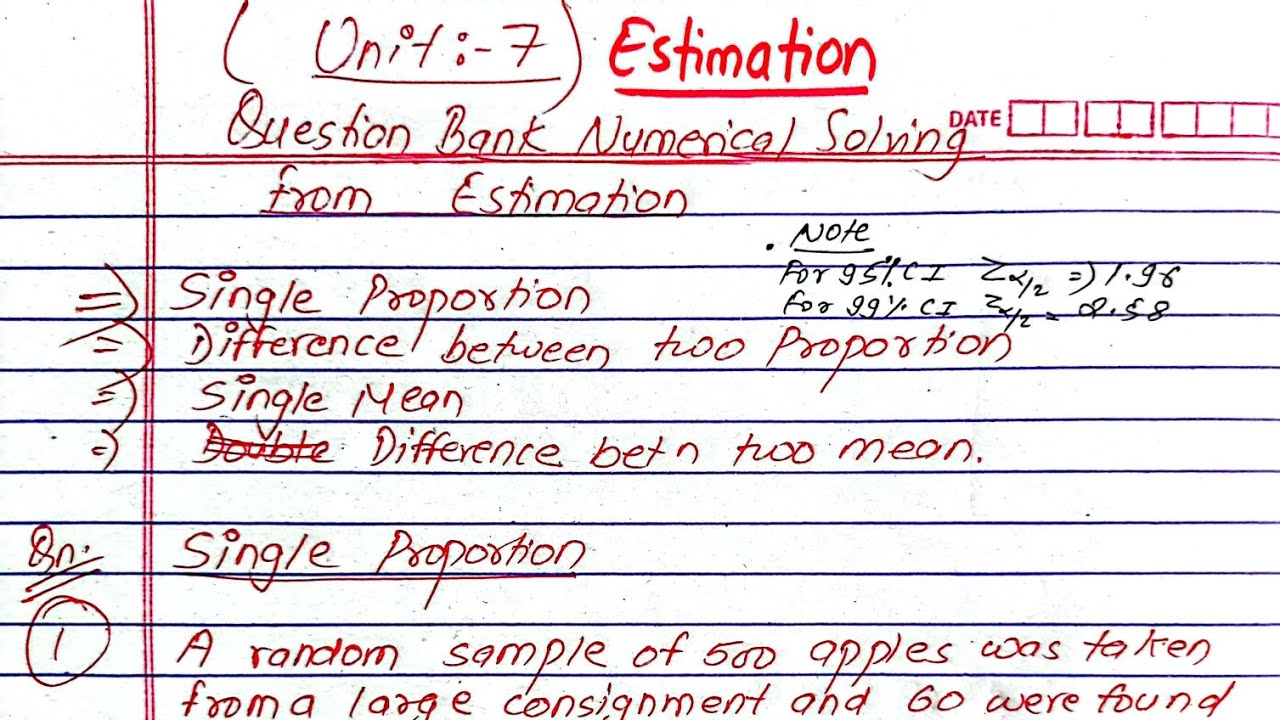 (Unit:-7) Estimation
DATE
Question Bank Numerical Solving
from Estimation
Note
For 95% CI Zα/2 => 1.96
for 99% CI Zα/2 = 2.58
=> Single Proportion
=> Difference between two Proportion
=> Single Mean
=> Double Difference betn two mean.
Qn. Single Proportion
1 A random sample of 500 apples was taken
from a large consignment and 60 were found